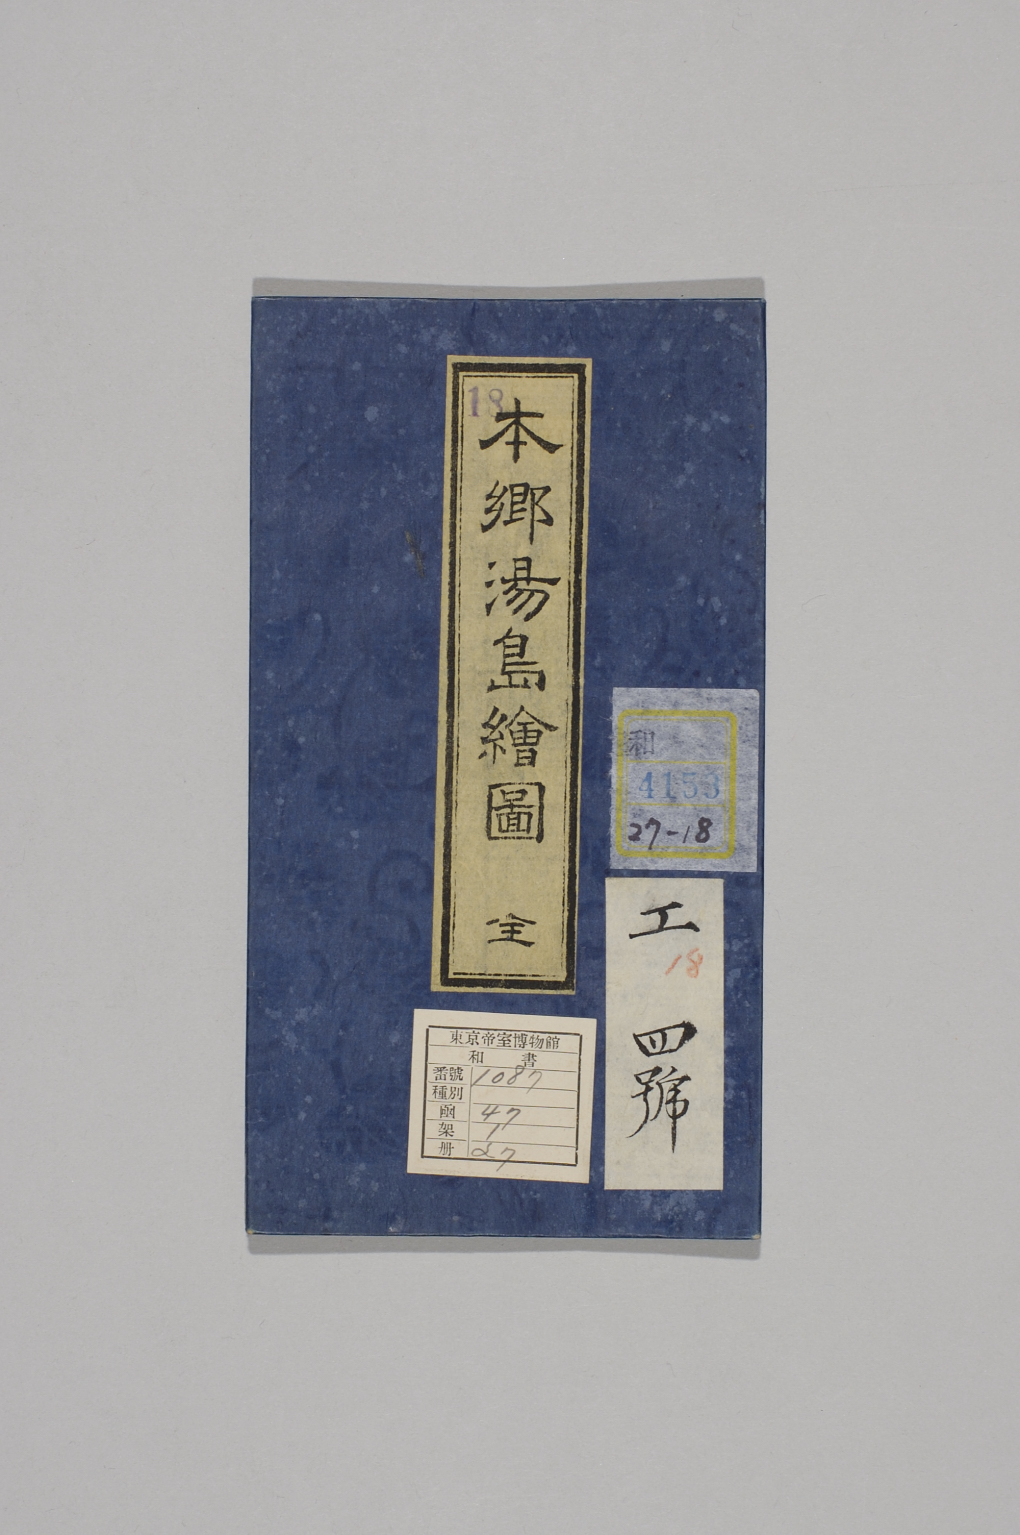 18
本鄉湯島繪圖 全
和
4153
27-18
工
18
四號
東京帝室博物館
和書
番號 1087
種別
函 47
架 1
册 27